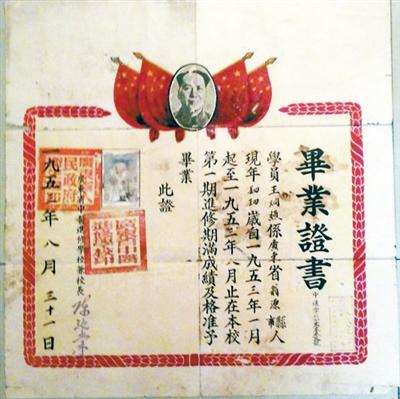 畢業證書
中進字第號
學員王炯係廣東省翁源縣人
現年歲自一九五三年一月
起至一九五三年八月止在本校
第一期進修期滿成績及格准予
畢業
此證
廣東省中醫進修學校兼校長
一九五三年八月三十一日